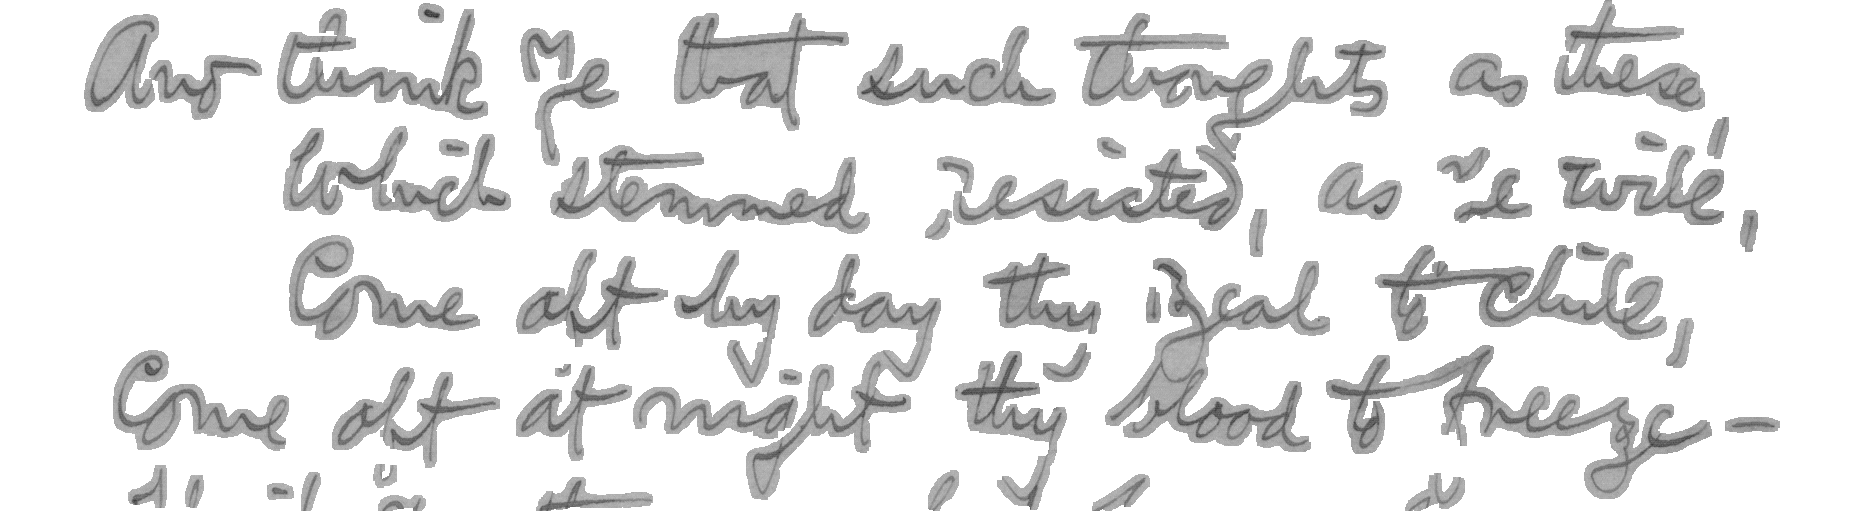 And think ye that such thoughts as these
Which stemmed, resisted, as ye will,
Come oft by day thy zeal to chill,
Come oft at night thy blood to freeze —